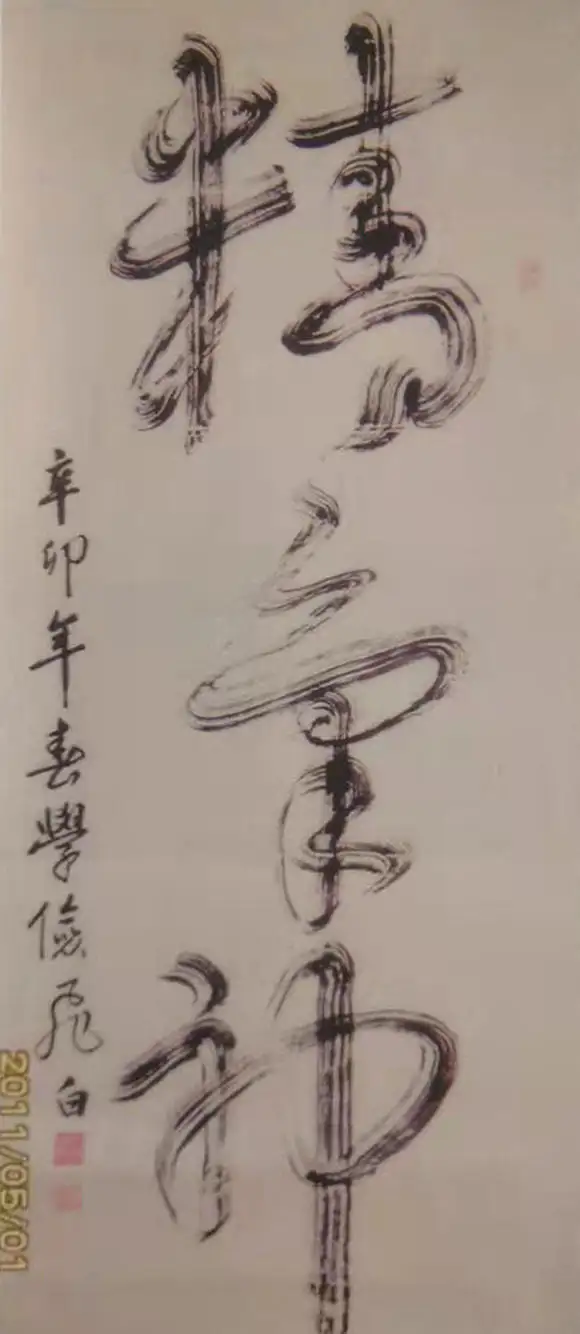 精氣神
辛卯年春學儉飛白
2011/05/01